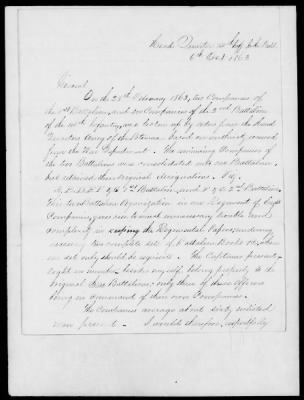 Head Quarters
1863
General
On the 28th February 1863, two Companies of
the 1st Battalion, and two Companies of the 2nd Battalion
of the Infantry, were broken up by orders from the Head
Quarters Army of the Potomac based on authority received
from the War Department. The remaining Companies of
the two Battalions were consolidated into one Battalion,
but retained their original designations.
1st Battalion, and 2nd Battalion.
This two Battalion Organization in one Regiment of Eight
Companies, gives rise to much unnecessary trouble and
complexity in keeping the Regimental Papers, rendering
necessary two complete sets of Battalion Books &c, where
one set only should be required. The Captains present,
eight in number besides myself, belong properly to the
original Battalions, only three of these officers
being in command of their own Companies.
The Companies average about sixty enlisted
men present. I would therefore, respectfully